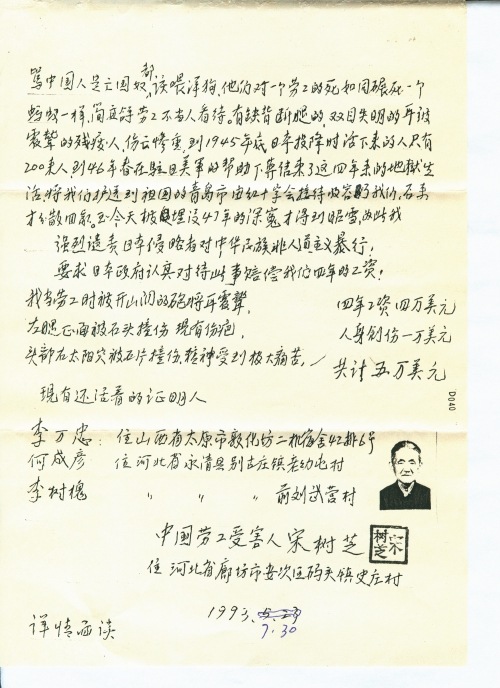 骂中国人是亡国奴,都该喂洋狗,他们对一个劳工的死如同碾死一个
蚂蚁一样,简直把劳工不当人看待。有缺背断腿的,双目失明的,耳被
震聋的残废人,伤亡惨重,到1945年底日本投降时活下来的人只有
200来人,到46年春在驻日美军的帮助下,才结束了这四年来的地狱生
活,将我们护送到祖国的青岛市由红十字会接待收容了我们,后来
才分散回家。至今天被埋没47年的深冤才得到昭雪,为此我
强烈谴责日本侵略者对中华民族非人道主义暴行,
要求日本政府认真对待此事赔偿我们四年的工资!
我当劳工时被开山洞的炮将耳震聋,
左腿正面被石头撞伤 现有伤疤,
头部右太阳穴被石片撞伤,精神受到极大痛苦,
四年工资四万美元
人身创伤一万美元
共计五万美元
D040
现有还活着的证明人
李万忠:住山西省太原市敦化坊二机宿舍42排6号
何成彦 住河北省永清县别古庄镇老幼屯村
李树槐 〃 〃 〃 前刘武营村
中国劳工受害人宋树芝
宋树芝
住河北省廊坊市安次区码头镇史庄村
1993.
7.30
详情面谈